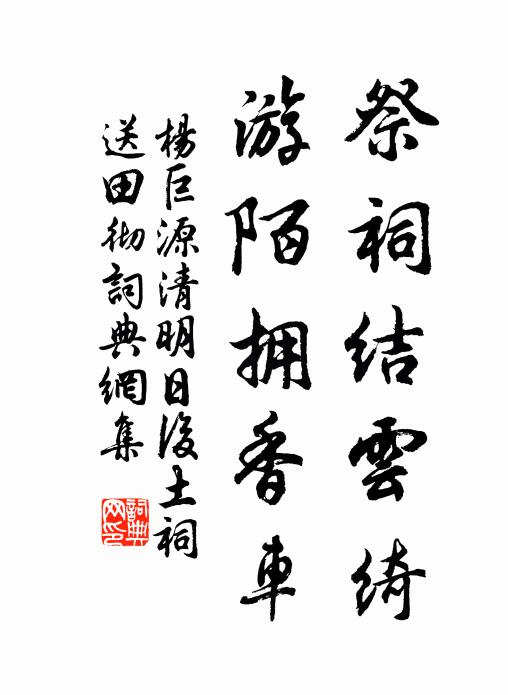 祭祠結雲綺
游陌拥香車
楊巨源清明日後土祠
送田彻詞典網集
詞典
网印